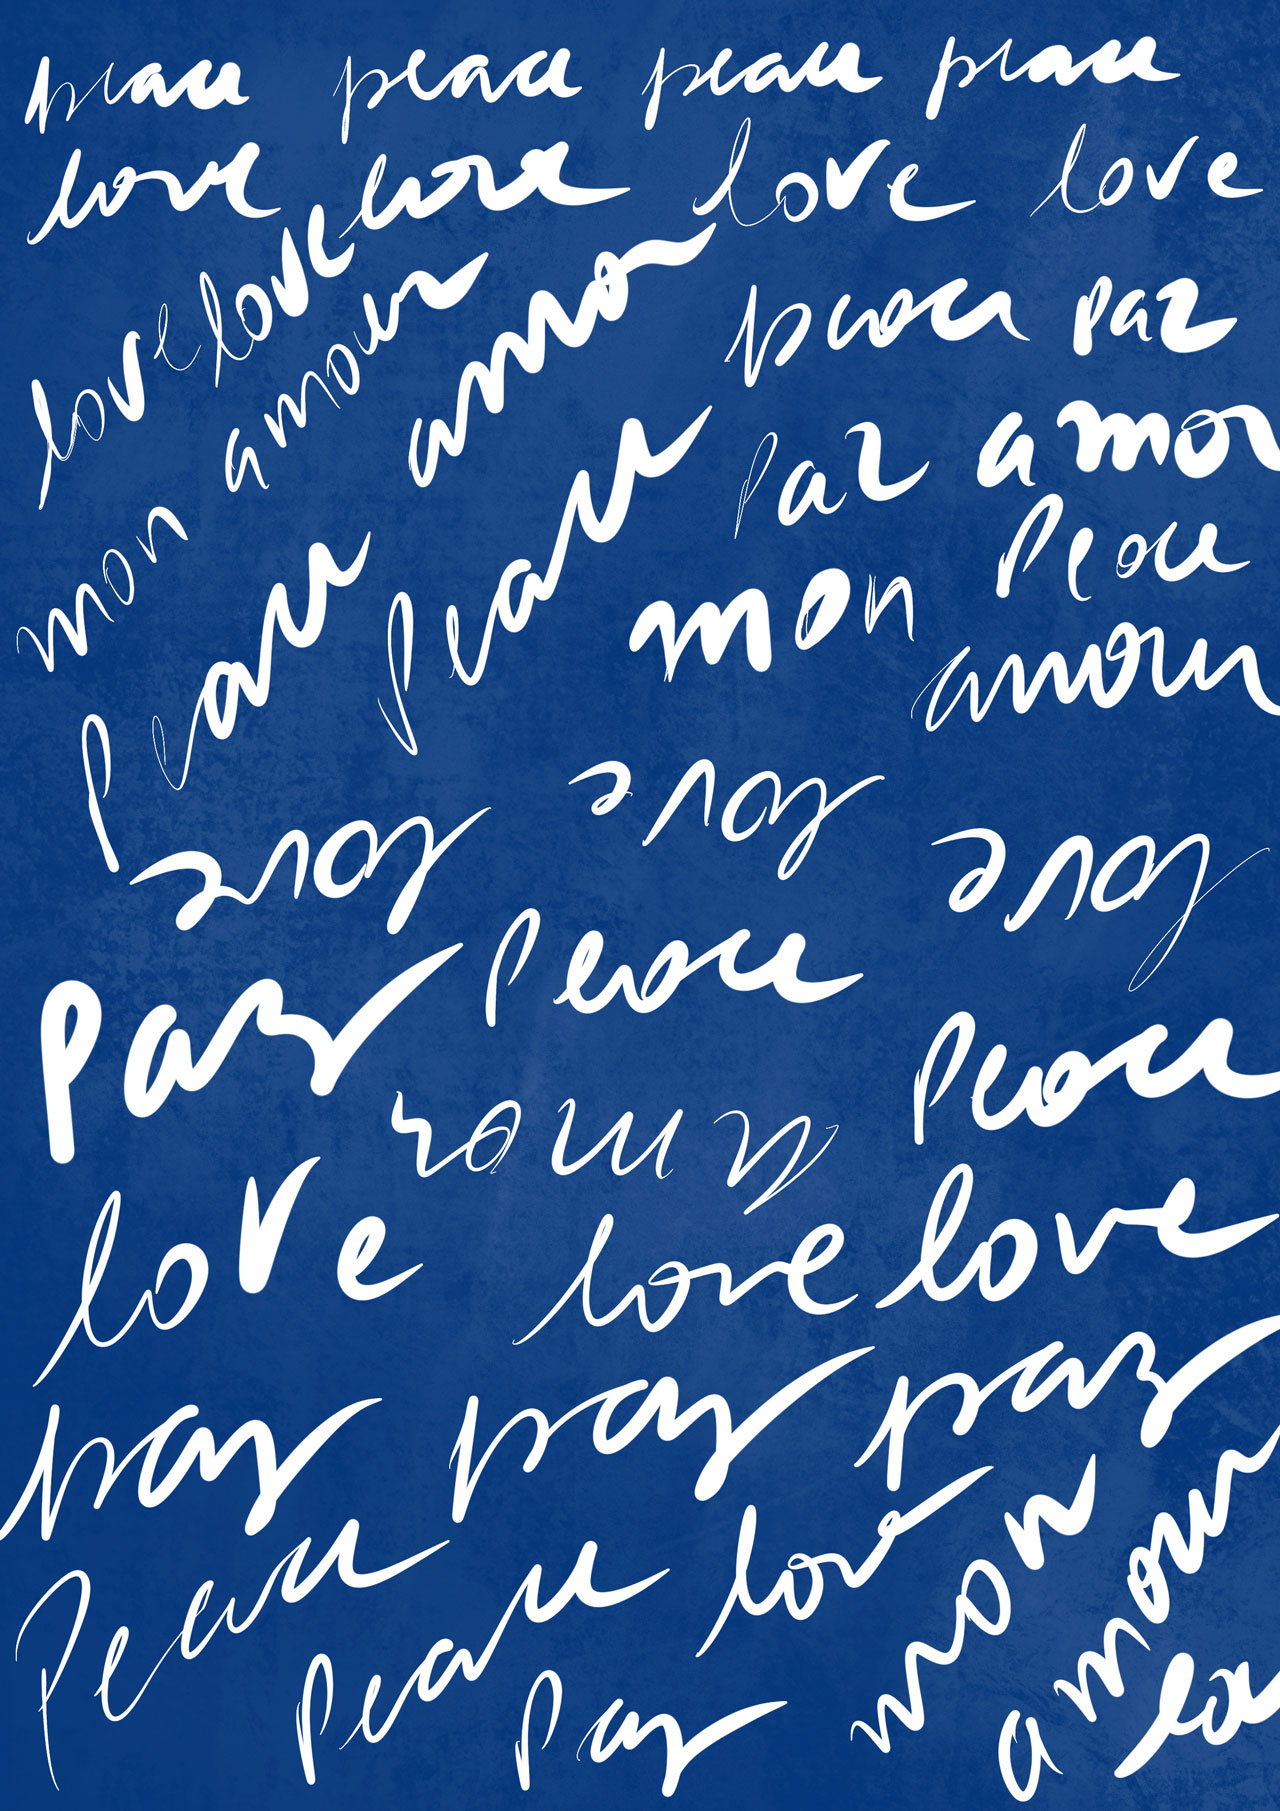 peace peace peace peace
love love love love
love love
mon amour
amor
peace paz
paz amor
peace peace
mon peace
amour
love love love
paz peace
peace
amor
love love love
paz paz paz
peace peace love mon amour
paz